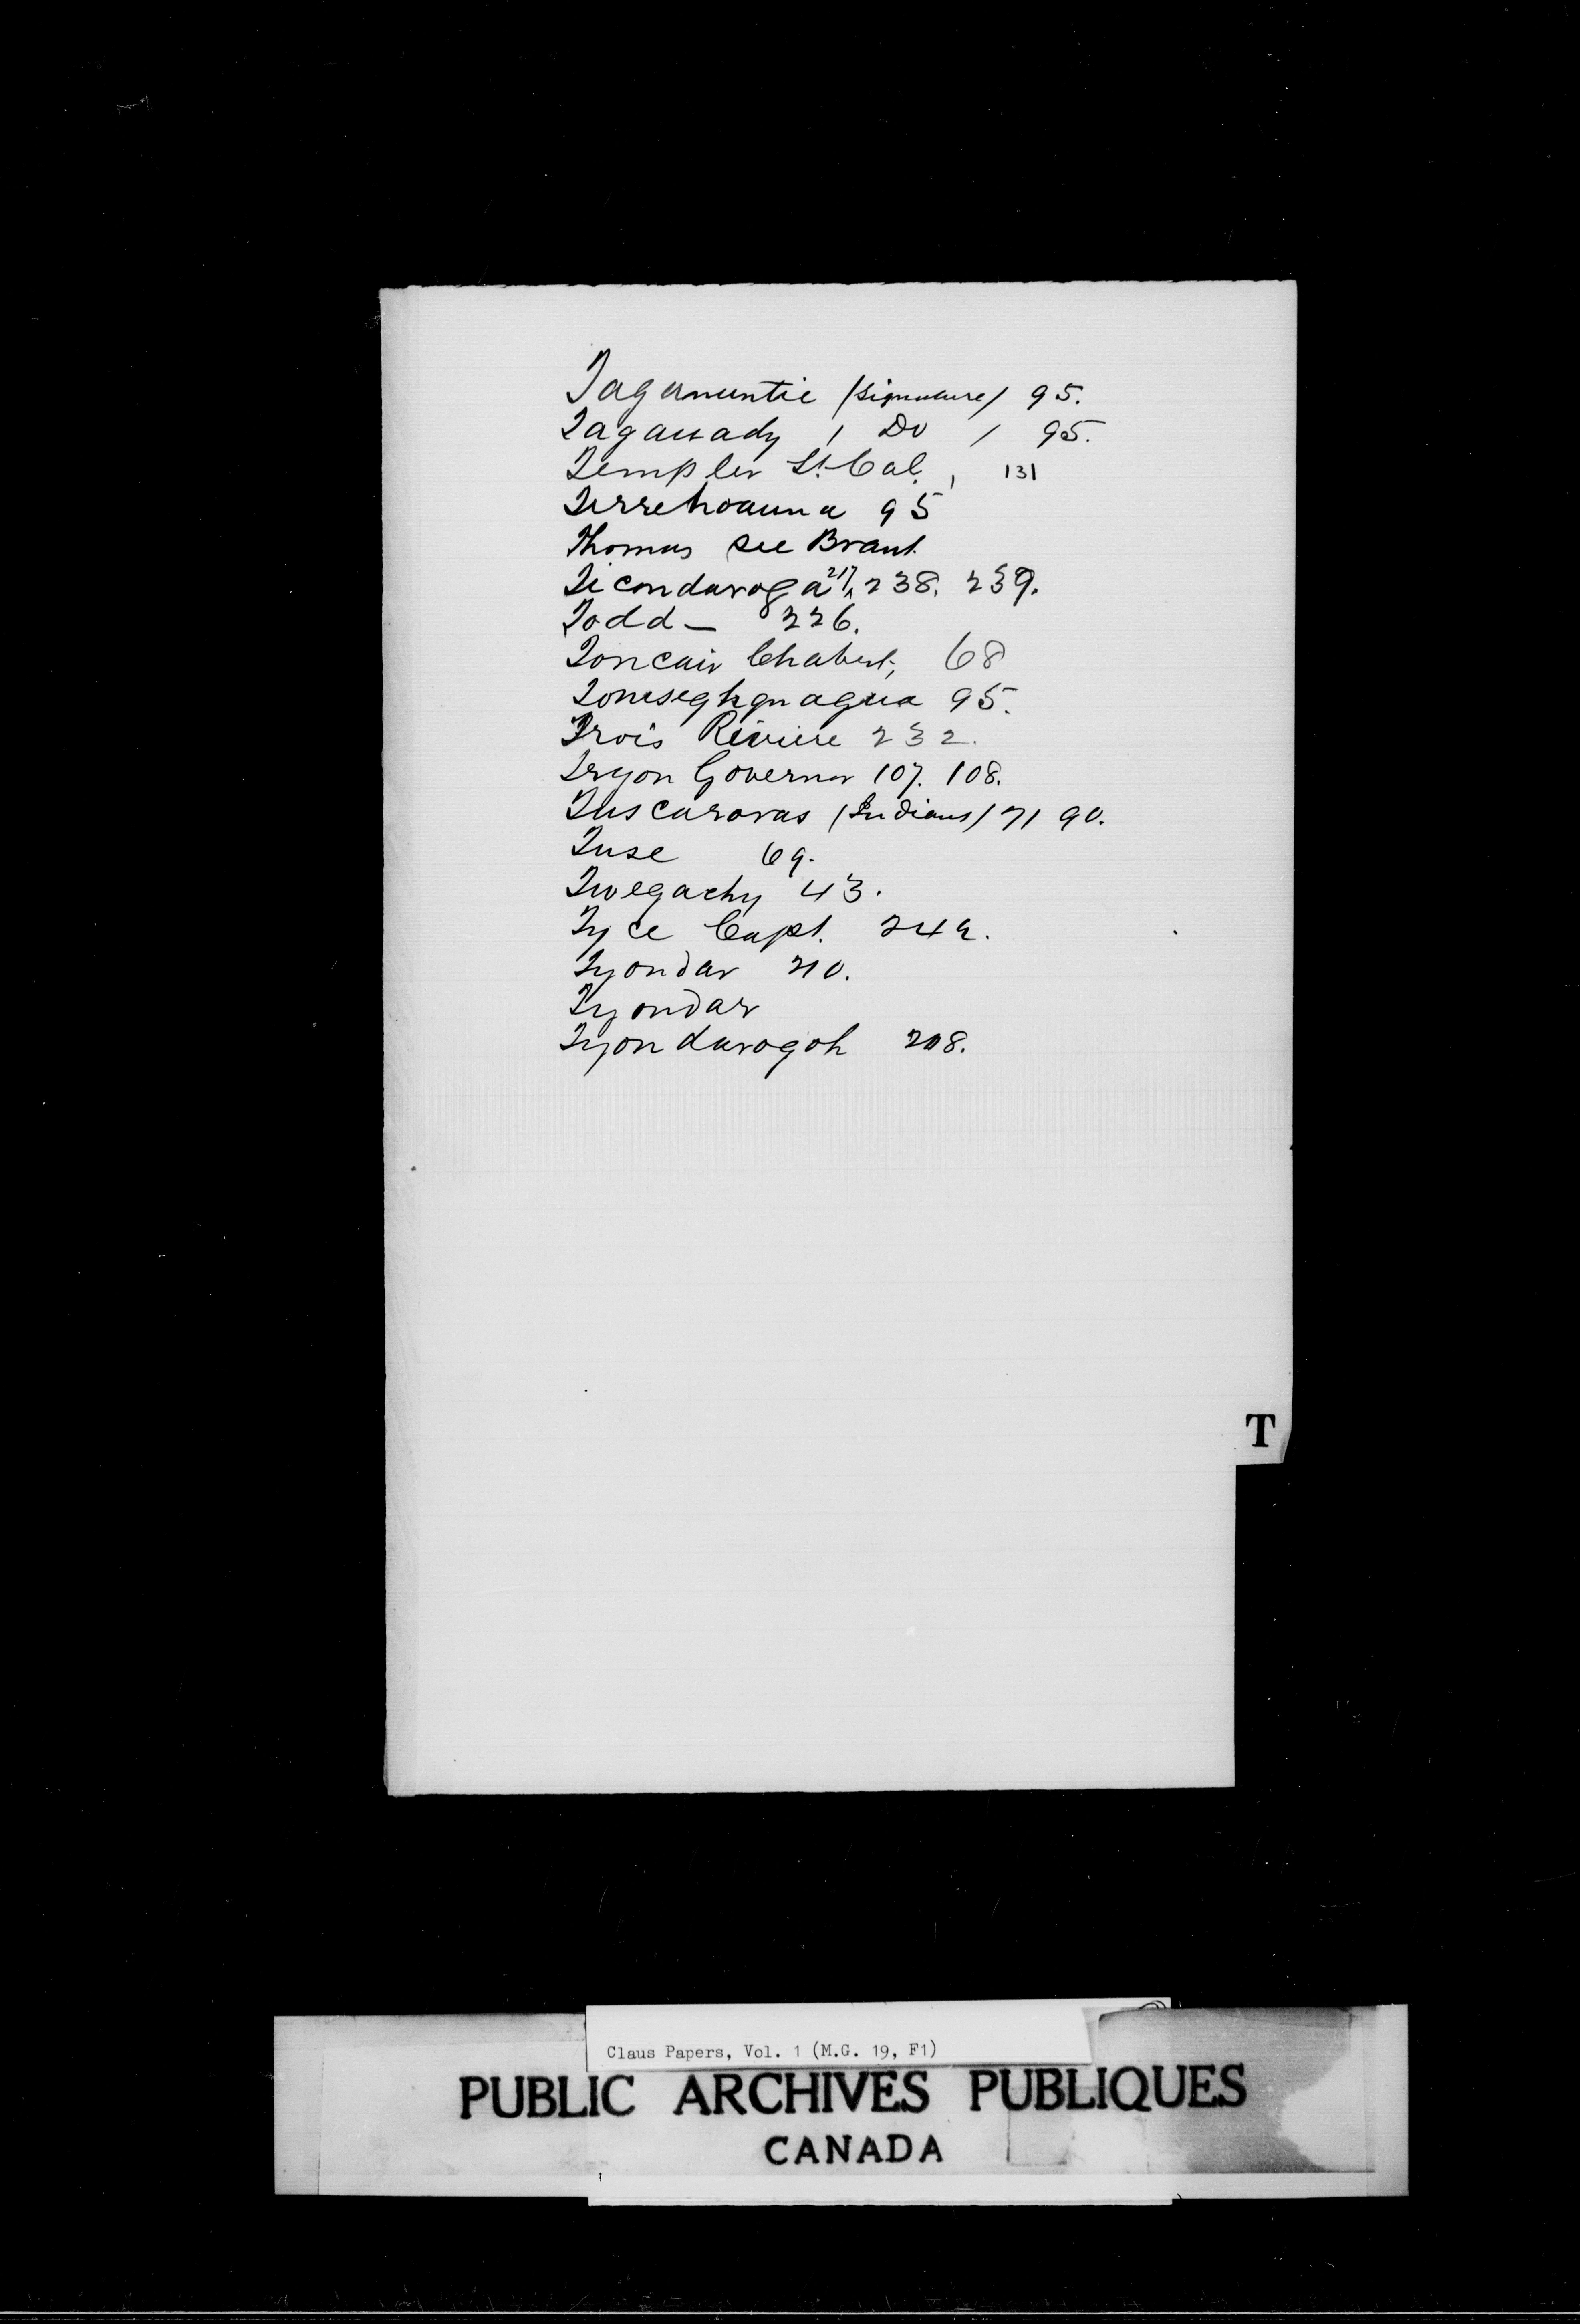 Taganuntie (Signature) 95.
Tagauady ( Do ) 95.
Templer Lt. Col., 131
Terrehoauna 95
Thomas see Brant
Ticondaroga 217, 238. 239.
Todd — 226.
Toncair Chabert, 68
Toneseghquagua 95.
Trois Riviere 232.
Tryon Governor 107. 108.
Tuscaroras (Indians) 71 90.
Tuse 69.
Twegachy 43.
Tyce Capt. 242.
Tyondar 210.
Tyondar
Tyondarogoh 208.
T
Claus Papers, Vol. 1 (M.G. 19, F1)
PUBLIC ARCHIVES PUBLIQUES
CANADA